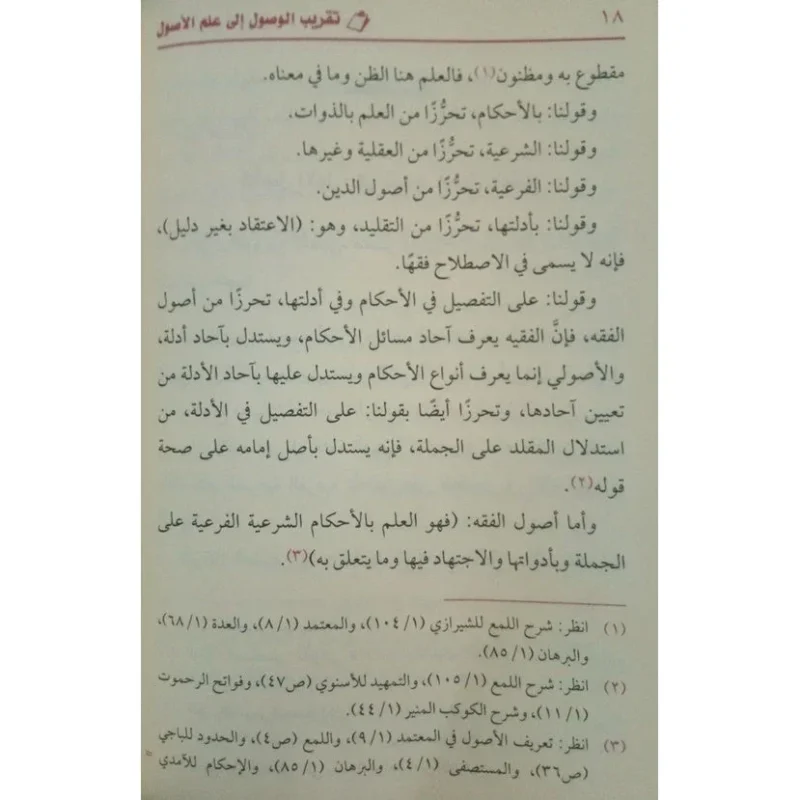 ١٨ تقريب الوصول إلى علم الأصول
مقطوع به ومظنون(١)، فالعلم هنا الظن وما في معناه.
وقولنا: بالأحكام، تحرُّزًا من العلم بالذوات.
وقولنا: الشرعية، تحرُّزًا من العقلية وغيرها.
وقولنا: الفرعية، تحرُّزًا من أصول الدين.
وقولنا: بأدلتها، تحرُّزًا من التقليد، وهو: (الاعتقاد بغير دليل)،
فإنه لا يسمى في الاصطلاح فقهًا.
وقولنا: على التفصيل في الأحكام وفي أدلتها، تحرزًا من أصول
الفقه، فإنَّ الفقيه يعرف آحاد مسائل الأحكام، ويستدل بآحاد أدلة،
والأصولي إنما يعرف أنواع الأحكام ويستدل عليها بآحاد الأدلة من
تعيين آحادها، وتحرزًا أيضًا بقولنا: على التفصيل في الأدلة، من
استدلال المقلد على الجملة، فإنه يستدل بأصل إمامه على صحة
قوله(٢).
وأما أصول الفقه: (فهو العلم بالأحكام الشرعية الفرعية على
الجملة وبأدواتها والاجتهاد فيها وما يتعلق به)(٣).
(١) انظر: شرح اللمع للشيرازي (١/ ١٠٤)، والمعتمد (١/ ٨)، والعدة (١/ ٦٨)،
والبرهان (١/ ٨٥).
(٢) انظر: شرح اللمع (١/ ١٠٥)، والتمهيد للأسنوي (ص٤٧)، وفواتح الرحموت
(١/ ١١)، وشرح الكوكب المنير (١/ ٤٤).
(٣) انظر: تعريف الأصول في المعتمد (١/ ٩)، واللمع (ص٤)، والحدود للباجي
(ص٣٦)، والمستصفى (١/ ٤)، والبرهان (١/ ٨٥)، والإحكام للآمدي